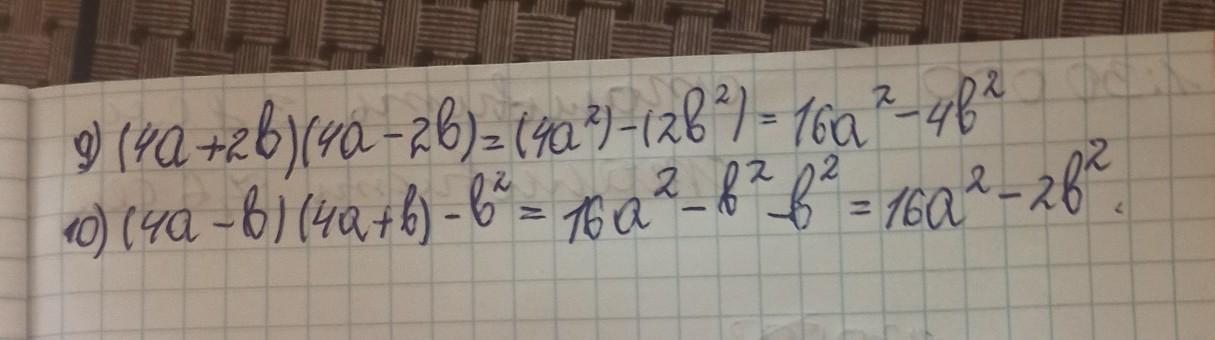 9) (4a+2b)(4a-2b)=(4a²)-(2b²)=16a²-4b²
10) (4a-b)(4a+b)-b²=16a²-b²-b²=16a²-2b².